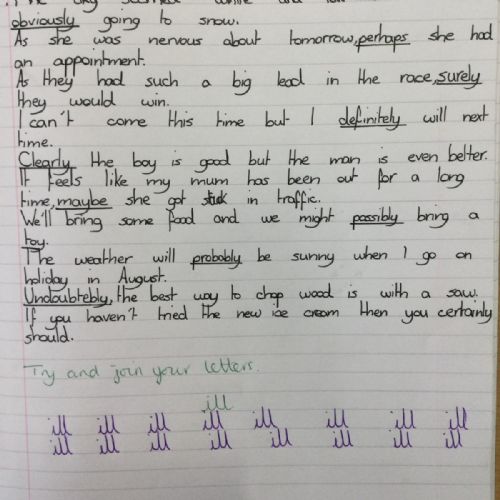 obviously going to snow.
As she was nervous about tomorrow, perhaps she had
an appointment.
As they had such a big lead in the race, surely
they would win.
I can't come this time but I definitely will next
time.
Clearly the boy is good but the man is even better.
It feels like my mum has been out for a long
time, maybe she got stuck in traffic.
We'll bring some food and we might possibly bring a
toy.
The weather will probably be sunny when I go on
holiday in August.
Undoubtebly, the best way to chop wood is with a saw.
If you haven't tried the new ice cream then you certainly
should.
Try and join your letters.
ill
ill ill ill ill ill ill ill ill
ill ill ill ill ill ill ill ill